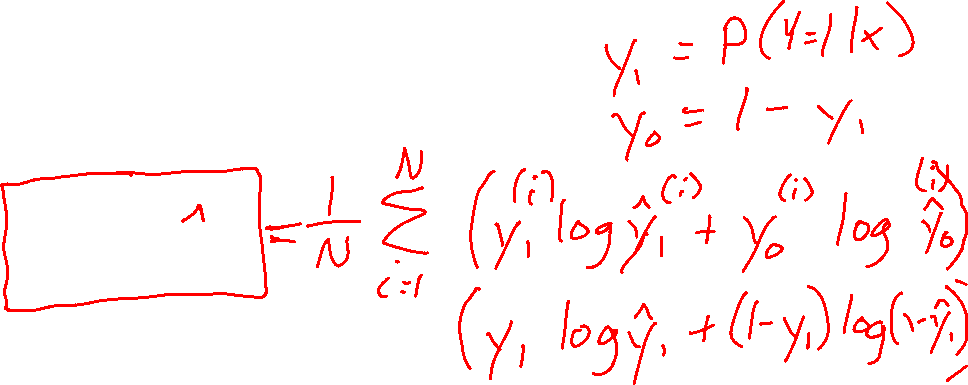 y₁ = P(y=1|x)
y₀ = 1 - y₁
^ = 1/N ∑_{i=1}^{N} (y₁⁽ⁱ⁾ log ŷ₁⁽ⁱ⁾ + y₀⁽ⁱ⁾ log ŷ₀⁽ⁱ⁾)
(y₁ log ŷ₁ + (1-y₁) log(1-ŷ₁))